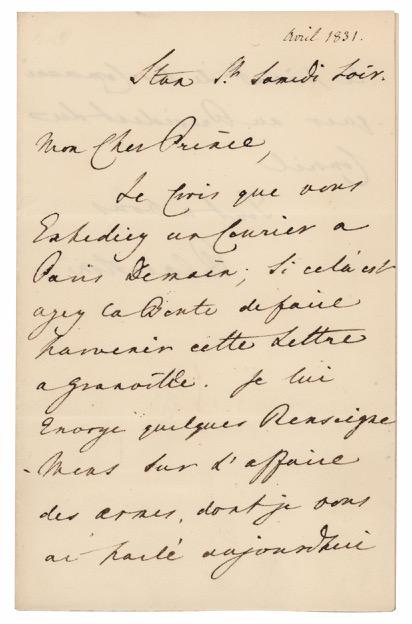 Avril 1831.
Stan St. Samedi Soir.
Mon Cher Prince,
Je Crois que vous
Expediez un Courier a
Paris Demain; Si cela est
ayez la Bonte de faire
parvenir cette Lettre
a Granville. Je lui
Envoye quelques Renseigne
-Mens Sur L'affaire
des armes, dont je vous
ai parlé aujourdhui